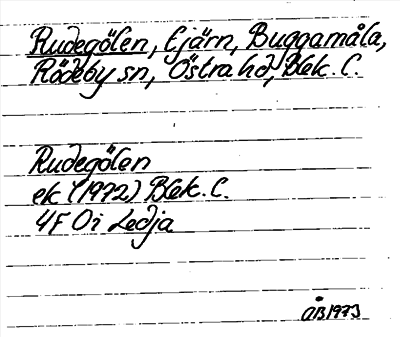 Rudegölen, tjärn, Buggamåla,
Rödeby sn, Östra hd, Blek. l.
Rudegölen
ek (1972) Blek. l.
4F 0i Ledja
ÅB 1973